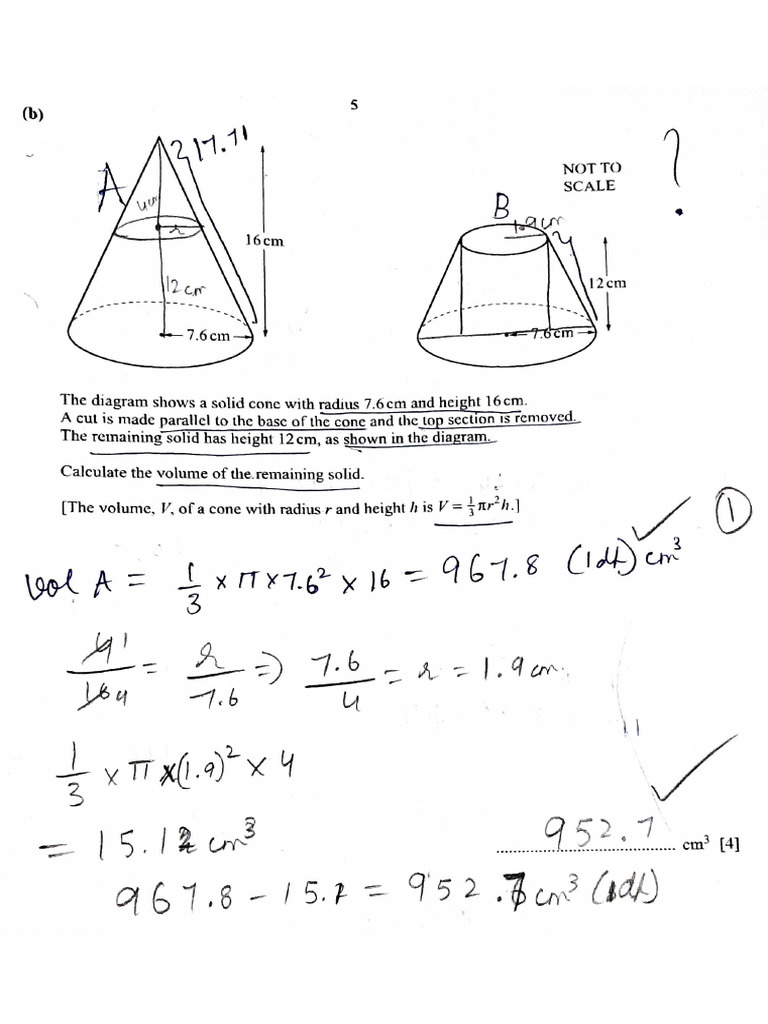 5
(b)
217.71
A
4cm
r
16cm
12cm
7.6cm
NOT TO
SCALE
?
B
1.9cm
12cm
7.6cm
The diagram shows a solid cone with radius 7.6cm and height 16cm.
A cut is made parallel to the base of the cone and the top section is removed.
The remaining solid has height 12cm, as shown in the diagram.
Calculate the volume of the remaining solid.
[The volume, V, of a cone with radius r and height h is V = 1/3 πr²h.]
1
Vol A = 1/3 × π × 7.6² × 16 = 967.8 (1dp) cm³
4 1 / 16 4 = r / 7.6 => 7.6 / 4 = r = 1.9 cm.
1/3 × π × (1.9)² × 4
= 15.12 cm³
952.7 cm³ [4]
967.8 - 15.1 = 952.7 cm³ (1dp)